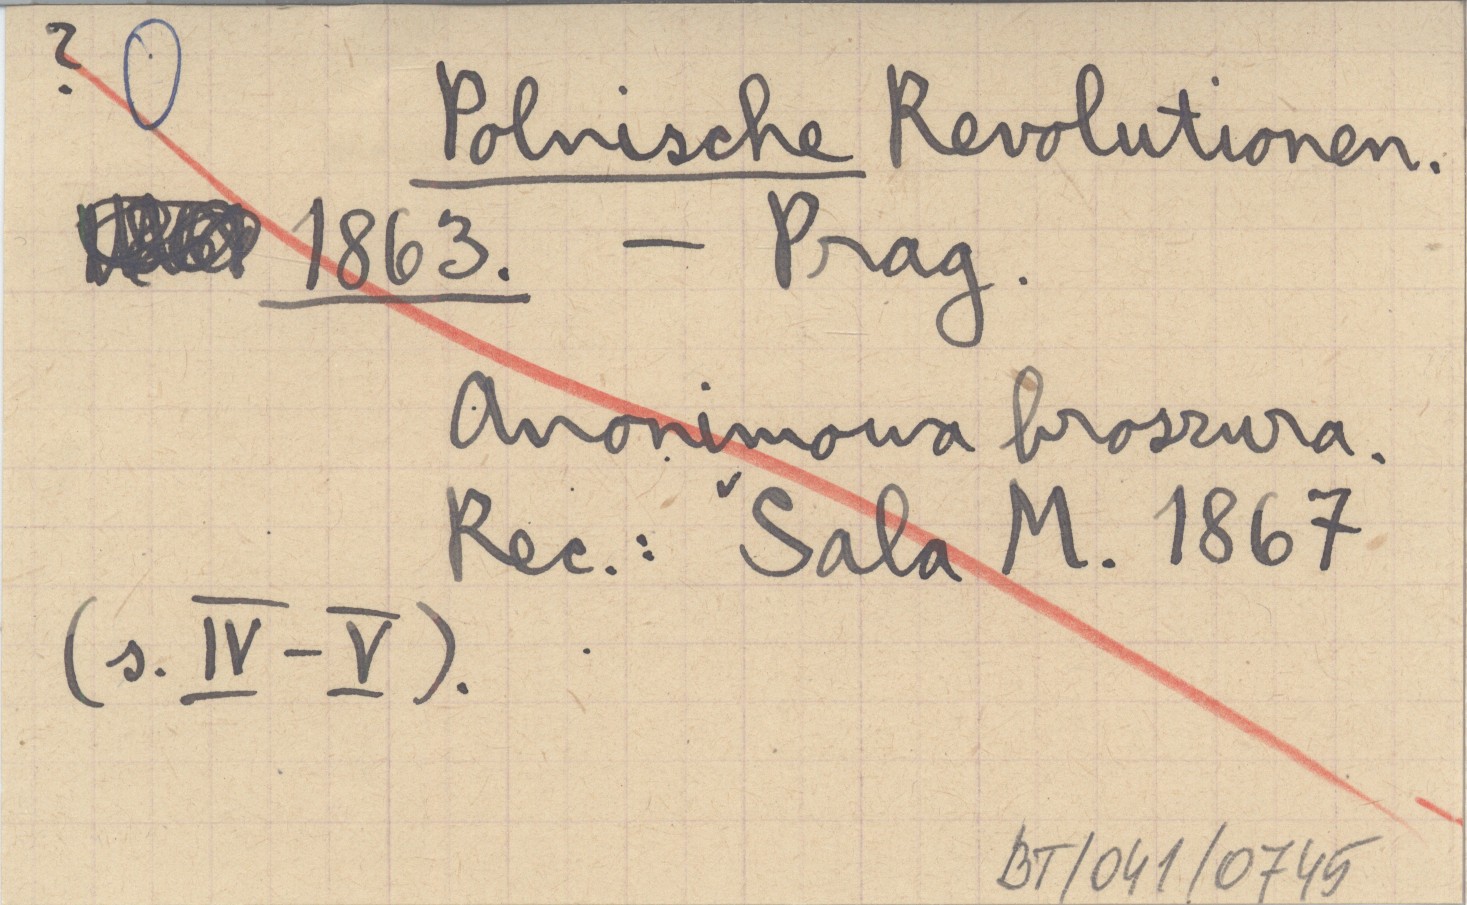 ?
Polnische Revolutionen.
1863. — Prag.
Anonimowa broszura.
Rec.: Sala M. 1867
(s. IV – V).
BT/041/0745